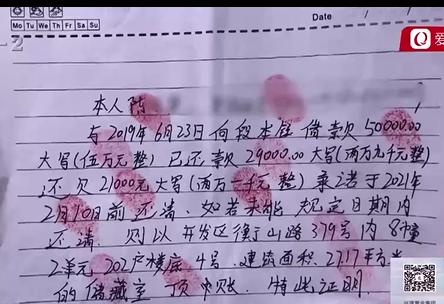 Date
Mo Tu We Th Fr Sa Su
-2
爱
本人陈
与2019年6月23日向段本 借款50000.00
大写(伍万元整)已还款29000.00大写(两万九千元整)
还欠21000元大写(两万一千元整)承诺于2021年
2月10日前还清、如若未能规定日期内
还清、则以开发区衡山路379号内8幢
2单元202户楼底4号、建筑面积27.17平方米
的储藏室顶账、特此证明.